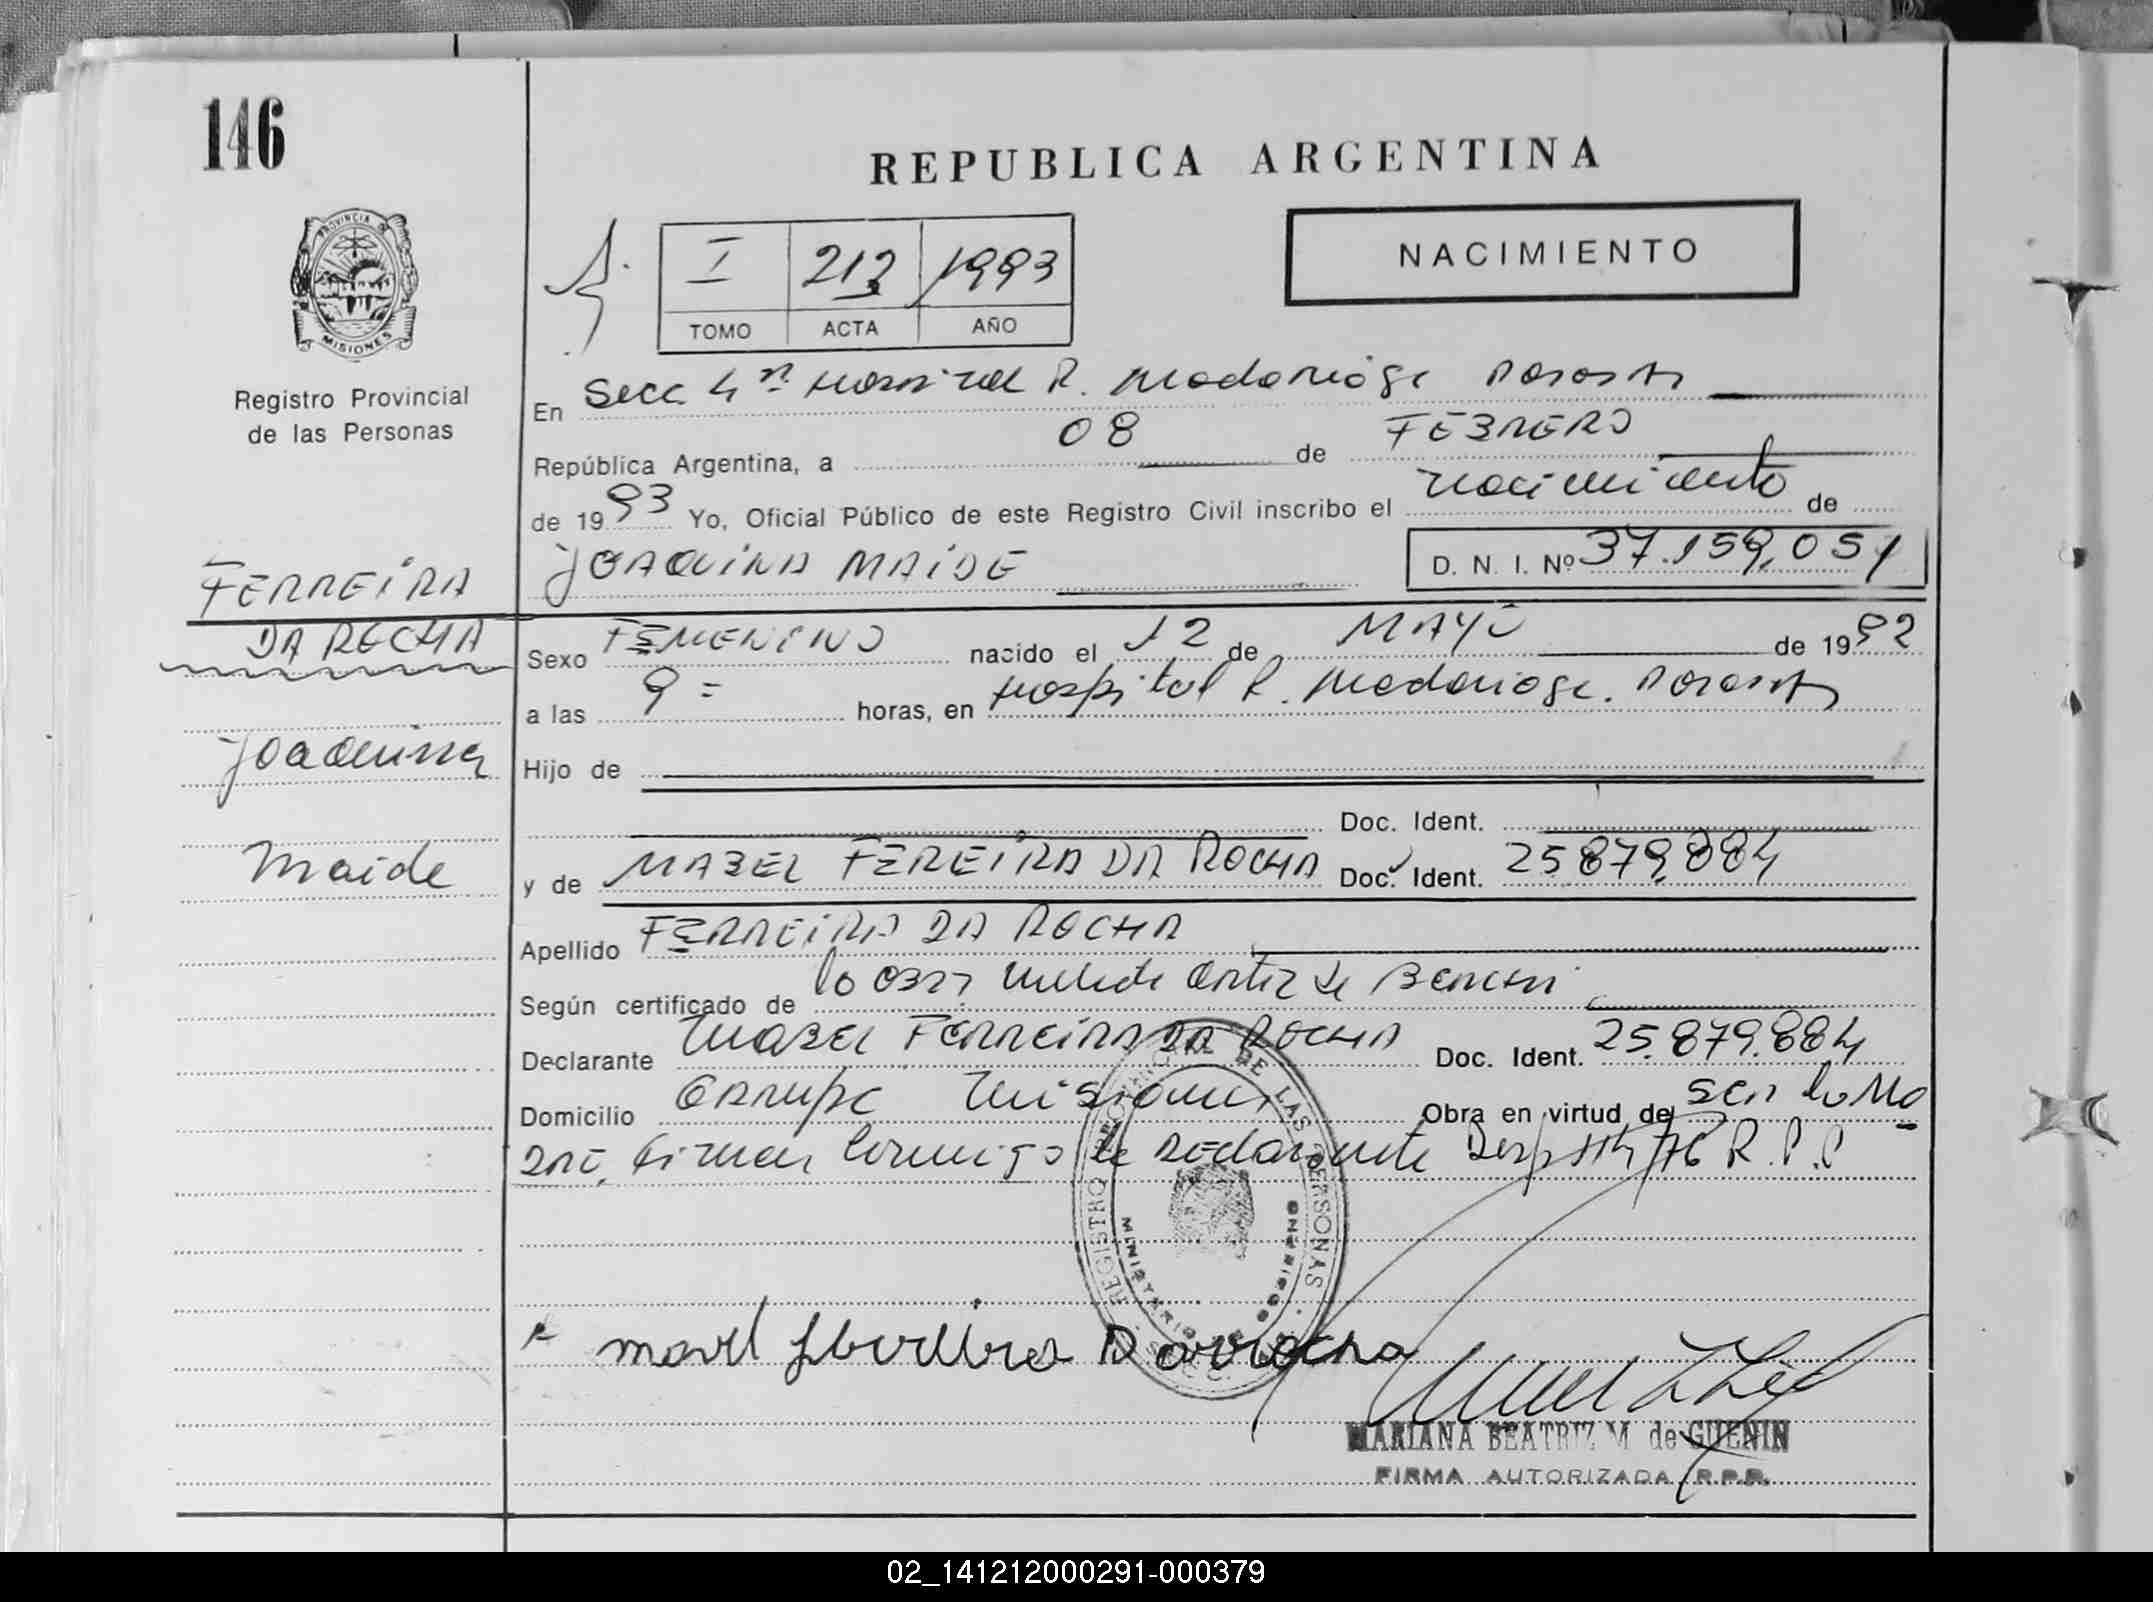 146
REPUBLICA ARGENTINA
PROVINCIA DE
MISIONES
Registro Provincial
de las Personas
NACIMIENTO
I 213 1993
TOMO ACTA AÑO
En Secc 4ª Hospital R. Madariaga Posadas
República Argentina, a 08 de FEBRERO
de 1993 Yo, Oficial Público de este Registro Civil inscribo el nacimiento de
JOAQUINA MAIDE D. N. I. Nº 37.159.051
FERREIRA
DA ROCHA
Joaquina
Maide
Sexo FEMENINO nacido el 12 de MAYO de 1992
a las 9= horas, en Hospital R. Madariaga. Posadas
Hijo de
Doc. Ident.
y de MABEL FEREIRA DA ROCHA Doc. Ident. 25.879.884
Apellido FERREIRA DA ROCHA
Según certificado de Ortiz de
Declarante Mabel FERREIRA DA ROCHA Doc. Ident. 25.879.884
Domicilio Garupa Misiones Obra en virtud de ser la Ma
dre, firman conmigo la declarante 76 R.P.P
REGISTRO PROVINCIAL DE LAS PERSONAS
MINISTERIO DE GOBIERNO
MARIANA BEATRIZ M. de GUENIN
FIRMA AUTORIZADA R.P.P.
02_141212000291-000379